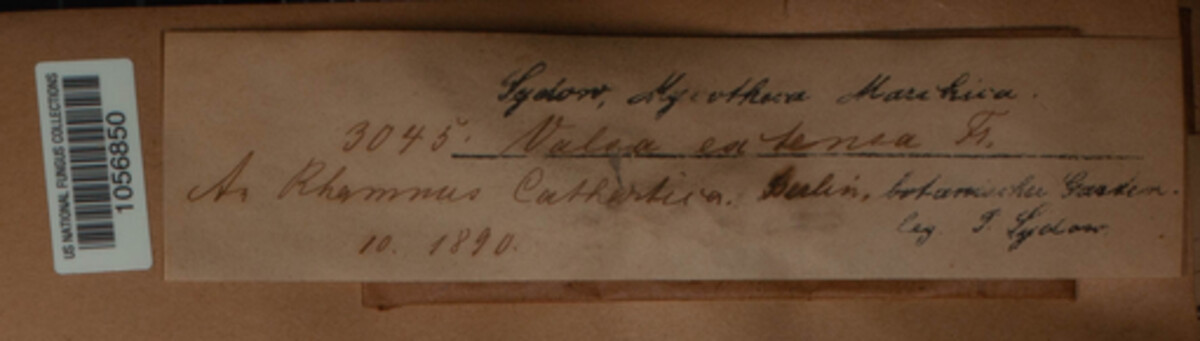 US NATIONAL FUNGUS COLLECTIONS
1056850
Sydow, Mycotheca Marchica.
3045. Valsa extensa Fr.
An Rhamnus Cathartica. Berlin, botanischer Garten.
leg. P. Sydow
10. 1890.